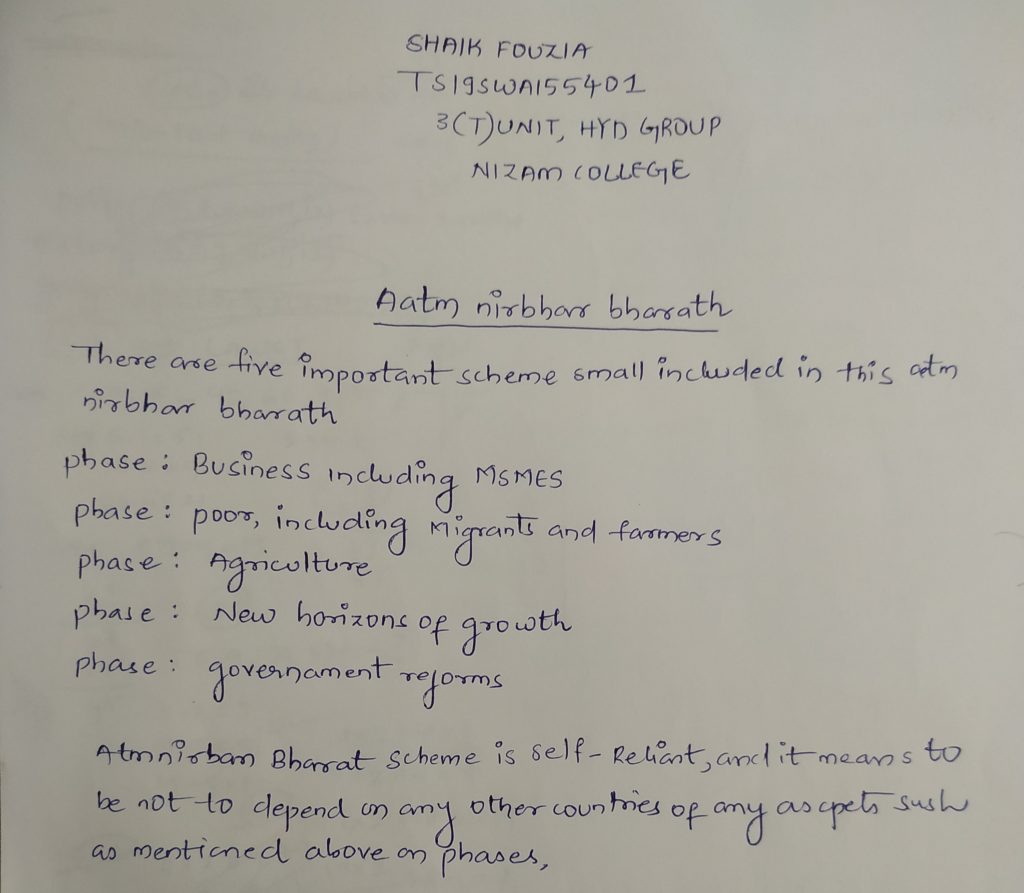 SHAIK FOUZIA
TS19SWA155401
3(T)UNIT, HYD GROUP
NIZAM COLLEGE
Aatm nirbhar bharath
There are five important scheme small included in this aatm
nirbhar bharath
phase : Business including MSMES
phase : poor, including Migrants and farmers
phase : Agriculture
phase : New horizons of growth
phase : governament reforms
Atmnirban Bharat scheme is self-Reliant, and it means to
be not to depend on any other countries of any ascpets sush
as mentioned above on phases,